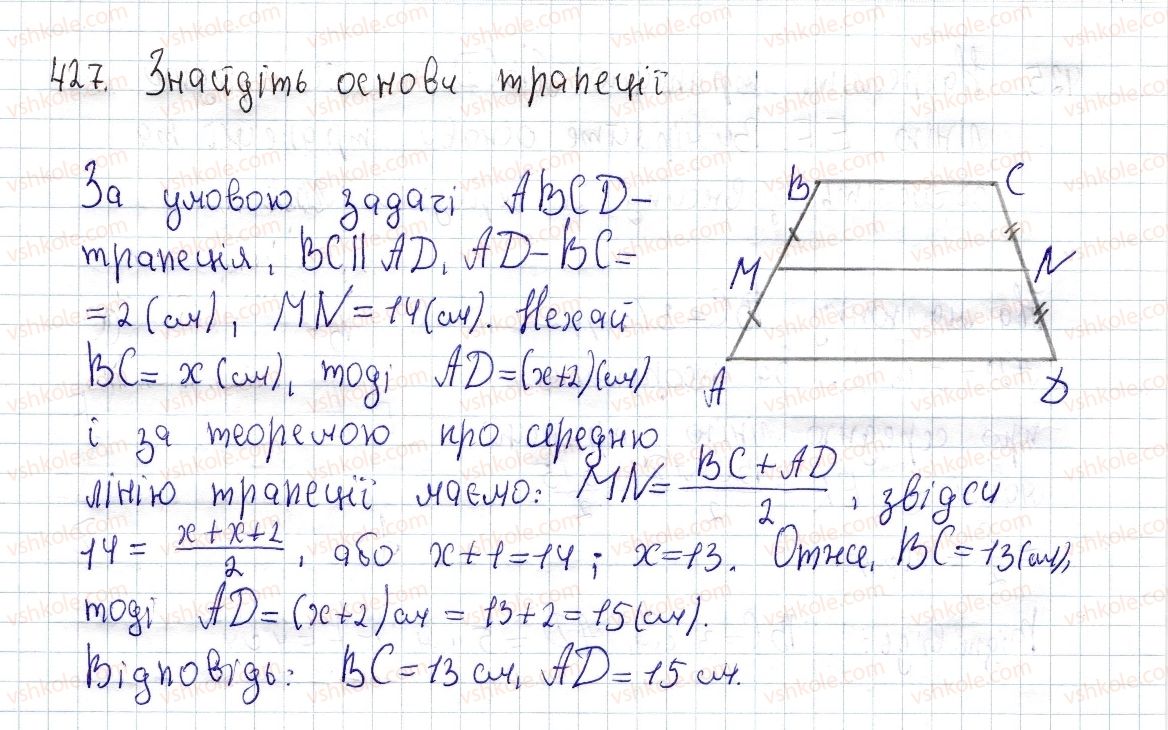 427. Знайдіть основи трапеції
За умовою задачі ABCD-
трапеція, BC||AD, AD-BC=
=2(см), MN=14(см). Нехай
BC=x(см), тоді AD=(x+2)(см)
і за теоремою про середню
лінію трапеції маємо: MN=(BC+AD)/2, звідси
14=(x+x+2)/2, або x+1=14; x=13. Отже, BC=13(см),
тоді AD=(x+2)см=13+2=15(см).
Відповідь: BC=13 см, AD=15 см.
B C
M N
A D
vshkole.com